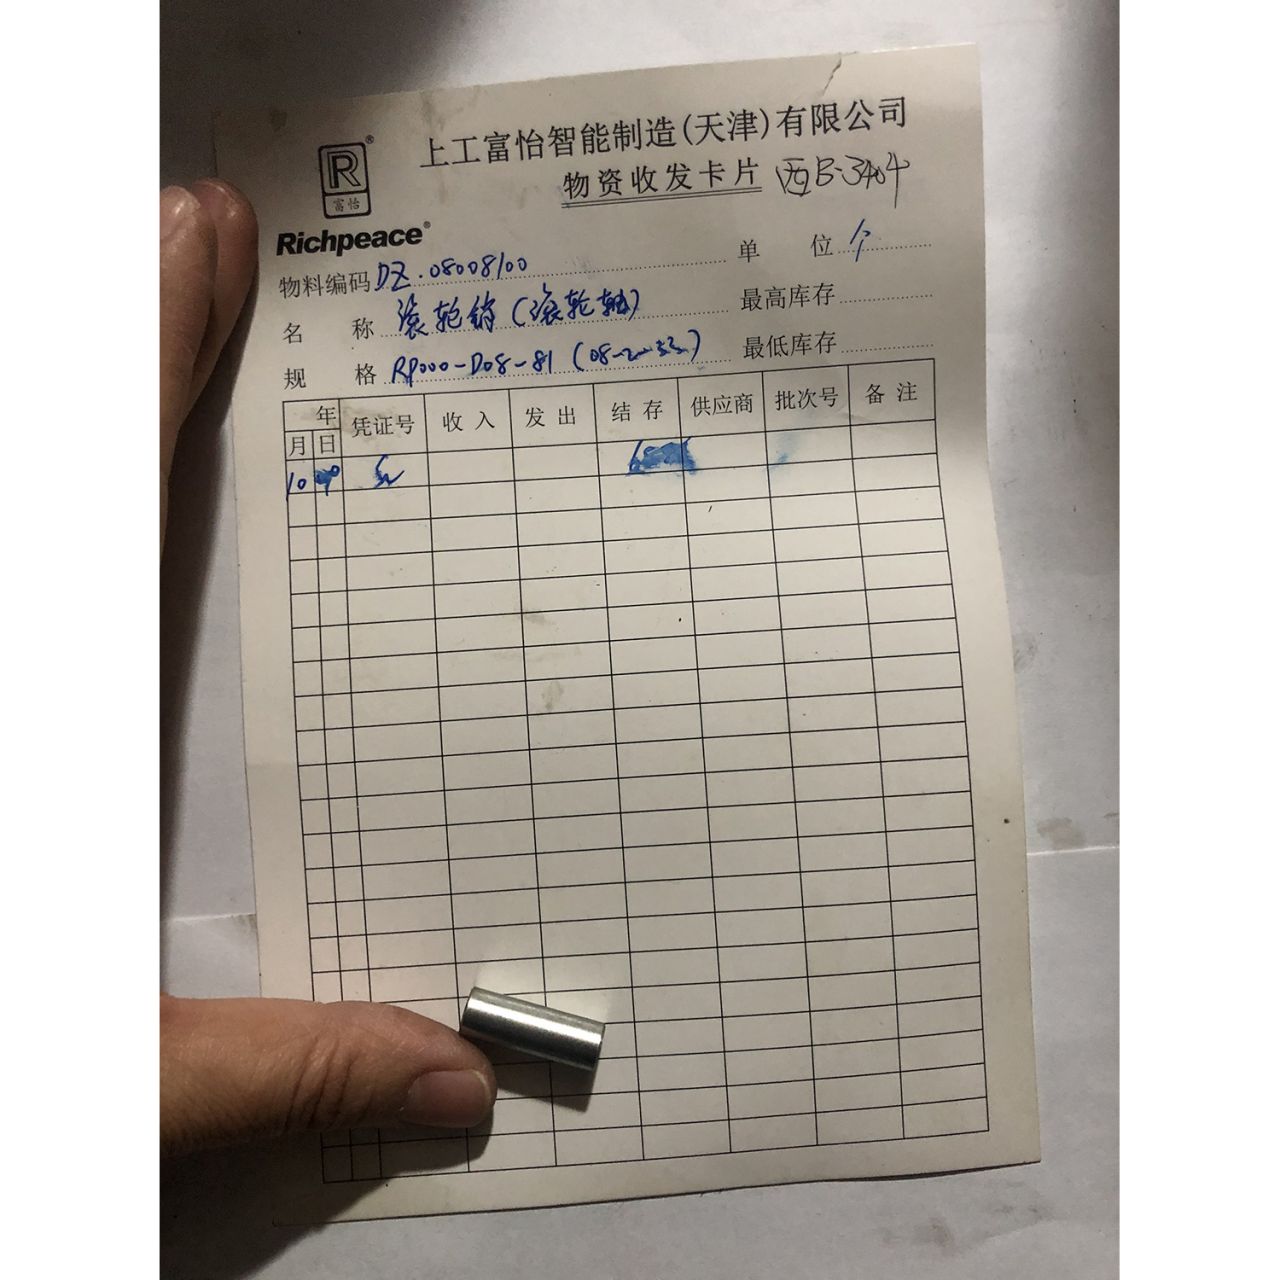 上工富怡智能制造(天津)有限公司
R®
富怡
物资收发卡片 西B-3404
Richpeace®
物料编码 DZ.08008100 单位 个
名称 滚轮销(滚轮轴) 最高库存
规格 RP000-D08-81 最低库存
年 凭证号 收入 发出 结存 供应商 批次号 备注
月 日
10